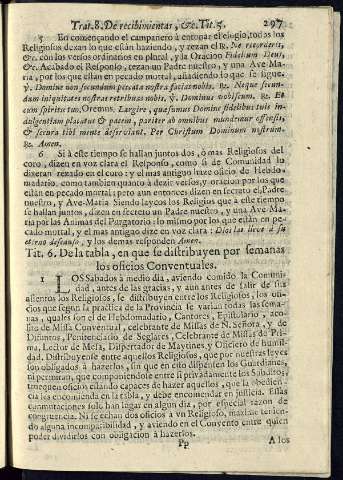 Trat. 8. De recibimientar, &c. Tit. 5. 297
5 En començando el campanero à entonar el elogio, todos los
Religiosos dexan lo que están haziendo, y rezan el ℞. Ne recorderis,
&c. con los versos ordinarios en plural, y la Oracion Fidelium Deus,
&c. Acabado el Responso, rezan un Padre nuestro, y una Ave Ma-
ria, por los que están en pecado mortal, añadiendo lo que se sigue.
℣. Domine non secundum peccata nostra facias nobis. ℞. Neque secun-
dum iniquitates nostras retribuas nobis. ℣. Dominus vobiscum. ℞. Et
cum spiritu tuo. Oremus. Largire, quæsumus Domine fidelibus tuis in-
dulgentiam placatus & pacem, pariter ab omnibus mundentur offensis,
& secura tibi mente deserviant. Per Christum Dominum nostrum.
℞. Amen.
6 Si à este tiempo se hallan juntos dos, ò mas Religiosos del
coro, dizen en voz clara el Responso, como si de Comunidad lo
dixeran rezado en el coro: y el mas antiguo haze oficio de Hebdo-
madario, como tambien quanto à dezir versos, y oracion por los que
están en pecado mortal; pero aun entonces dizen en secreto el Padre
nuestro, y Ave-Maria. Siendo laycos los Religiosos que à este tiempo
se hallan juntos, dizen en secreto un Padre nuestro, y una Ave Ma-
ria por las Animas del Purgatorio: lo mismo por los que están en pe-
cado mortal, y el mas antiguo dize en voz clara: Dios las lleve à su
eterno descanso, y los demas responden Amen.
Tit. 6. De la tabla, en que se distribuyen por semanas
los oficios Conventuales.
1 LOS Sabados à medio dia, aviendo comido la Comuni-
dad, antes de las gracias, y aun antes de salir de sus
assientos los Religiosos, se distribuyen entre los Religiosos, los ofi-
cios que segun la practica de la Provincia se varian todas las sema-
nas, quales son el de Hebdomadario, Cantores, Epistolario, aco-
lito de Missa Conventual, celebrante de Missas de N. Señora, y de
Difuntos, Penitenciario de Seglares, Celebrante de Missas de Pri-
ma, Lector de Mesa, Dispertador de Maytines, y Oficiero de humil-
dad. Distribuyense entre aquellos Religiosos, que por nuestras leyes
son obligados à hazerlos, sin que en esto dispensen los Guardianes,
ni permitan, que comutandole entre si privadamente los Subditos,
truequen oficios estando capaces de hazer aquellos, que la obedien-
cia les encomienda en la tabla, y debe encomendar en justicia. Estas
comutaciones solo han lugar en algun dia, por especial razon de
congruencia. Ni se echan dos oficios à un Religioso, maxime tenien-
do alguna incompatibilidad, y aviendo en el Convento entre quien
poder dividirlos con obligacion à hazerlos.
Pp A los